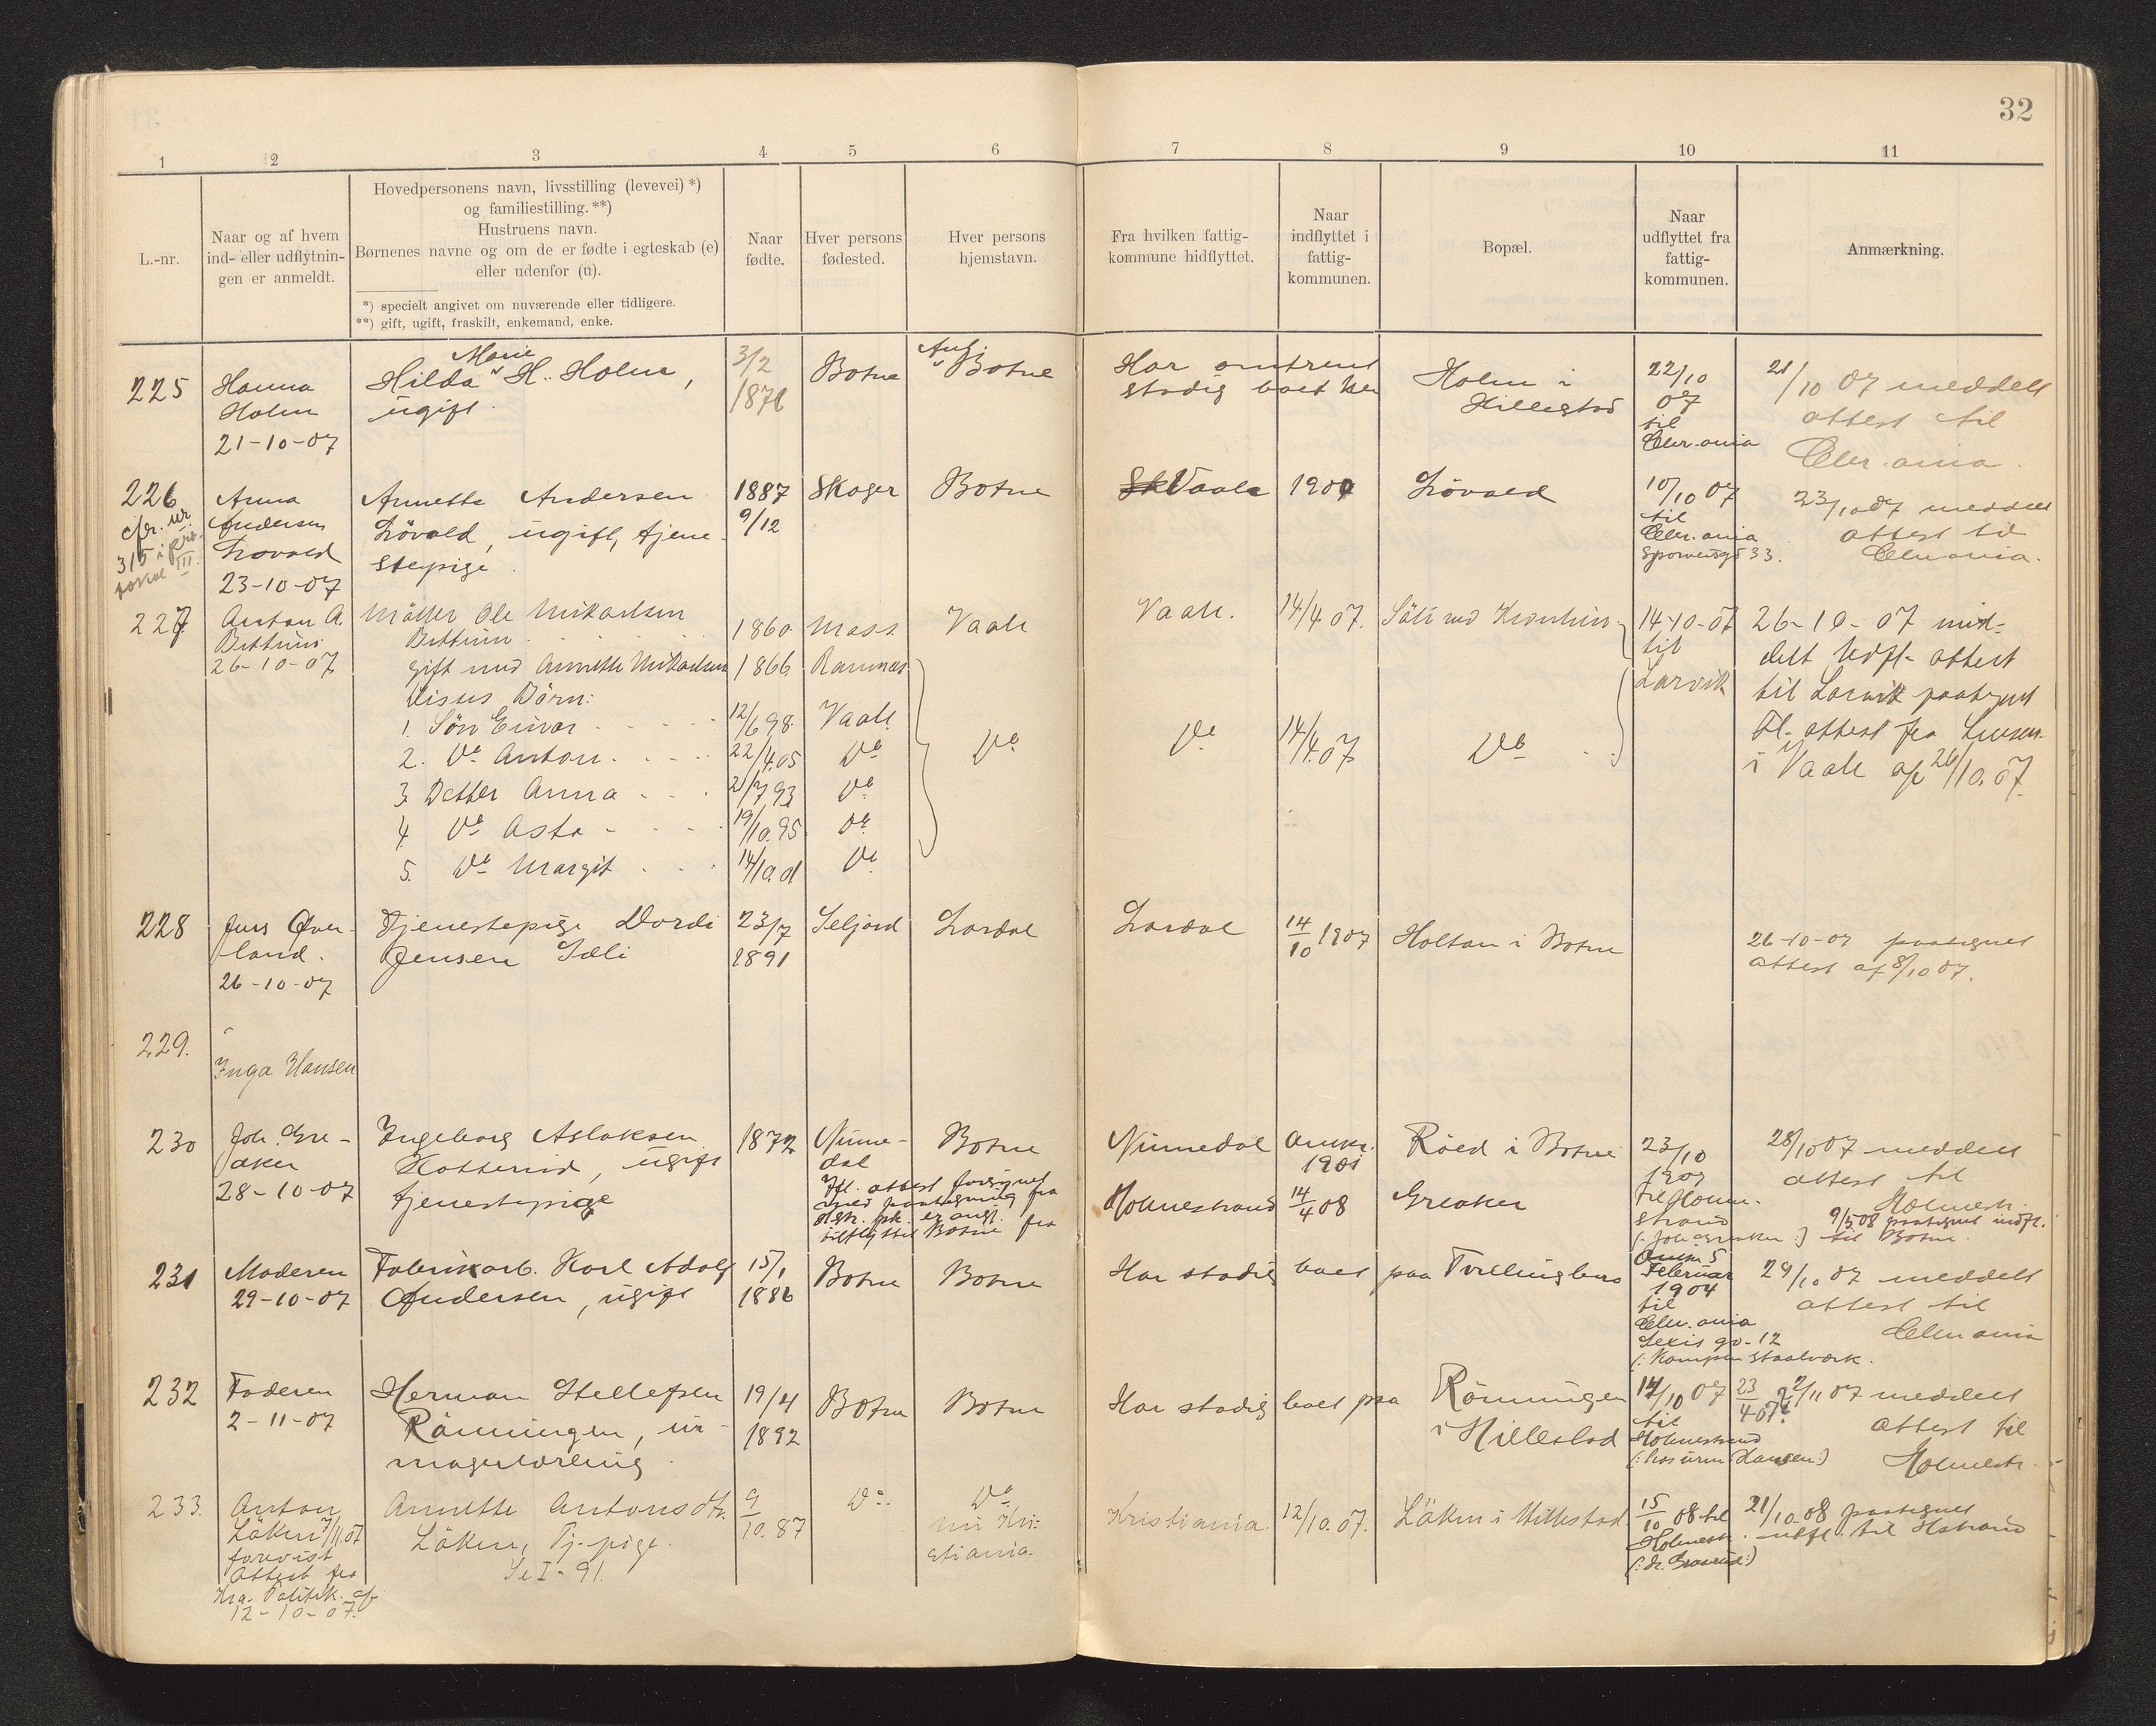 32
1 2 3 4 5 6 7 8 9 10 11
L.-nr.
Naar og af hvem
ind- eller udflytnin-
gen er anmeldt.
Hovedpersonens navn, livsstilling (levevei) *)
og familiestilling. **)
Hustruens navn.
Børnenes navne og om de er fødte i egteskab (e)
eller udenfor (u).
*) specielt angivet om nuværende eller tidligere.
**) gift, ugift, fraskilt, enkemand, enke.
Naar
fødte.
Hver persons
fødested.
Hver persons
hjemstavn.
Fra hvilken fattig-
kommune hidflyttet.
Naar
indflyttet i
fattig-
kommunen.
Bopæl.
Naar
udflyttet fra
fattig-
kommunen.
Anmærkning.
225
Hanna
Holm
21-10-07
Marie
Hilda H. Holm,
ugift.
3/2
Botne
Botne
Har omtrent
stadig boet her
Holm i
Hillestad
22/10
07
til
Chr.ania
21/10 07 meddelt
attest til
Chr.ania.
226
cfr. nr.
315 i
III.
Anna
Andersen
Lövald
23-10-07
Annette Andersen
Lövald, ugift, tjene-
stepige
1887
9/12
Skoger
Botne
Vaale
Lövald
10/10 07
til
Chr.ania
33.
23/10 07 meddelt
attest til
Chr.ania.
227
Anton A.
26-10-07
Möller Ole Mikaelsen
gift med Annette Mikaelsen
Disses Börn:
1. Sön Einar
2. Do Anton
3. Datter Anna
4. Do Asta
5. Do Margit
1860
1866
12/6 98
22/4 05
21/7 93
19/10 95
14/10
Moss
Ramnæs
Vaale
Do
Do
Do
Do
Vaale
Do
Vaale.
Do
14/4 07.
14/4 07
Do
14-10-07
til
Larvik
26-10-07 med-
delt Udfl- attest
til Larvik paategnet
Fl. attest fra
i Vaale af 26/10.07.
228
Jens Over-
land.
26-10-07
Tjenestepige Dordi
Jensen Sæli
23/7
1891
Seljord
Lardal
Lardal
14/10 1907
Holtan i Botne
26-10-07 paategnet
attest af 8/10 07.
229.
Inga Hansen
230
Joh. Gre-
aker
28-10-07
Ingeborg Aslaksen
ugift
tjenestepige
1872
Numme-
dal
Fl. attest
med paategning fra
er
Botne fra
Botne
Nummedal
Holmestrand
1901
14/4 08
Röed i Botne
Greaker
23/10
1907
til Holme-
strand
28/10 07 meddelt
attest til
Holmestr.
9/5 08 paategnet indfl.
til Botne.
231
Moderen
29-10-07
Fabrikarb. Karl Adolf
Andersen, ugift
15/1
1886
Botne
Botne
Har stadig boet paa
Februar
1904
til
Chr.ania
12
29/10 07 meddelt
attest til
Chr.ania
232
Faderen
2-11-07
Herman Stellefsen
Rönningen, ur-
magerlærling.
19/4
1892
Botne
Botne
Har stadig boet paa Rönningen
i Hillestad
til
Holmestrand
Hansen:)
2/11 07 meddelt
attest til
Holmestr.
233.
Anton
Löken
forevist
attest fra
12-10-07.
Annette Antonsdtr.
Löken, Tj-pige.
Se I-91.
9/10. 87
Do
Do
nu Kri-
stiania.
Kristiania.
12/10. 07.
Löken i Hillestad
15/10 08 til
Holmestr.
21/10-08 paategnet
udfl. til Hstrand